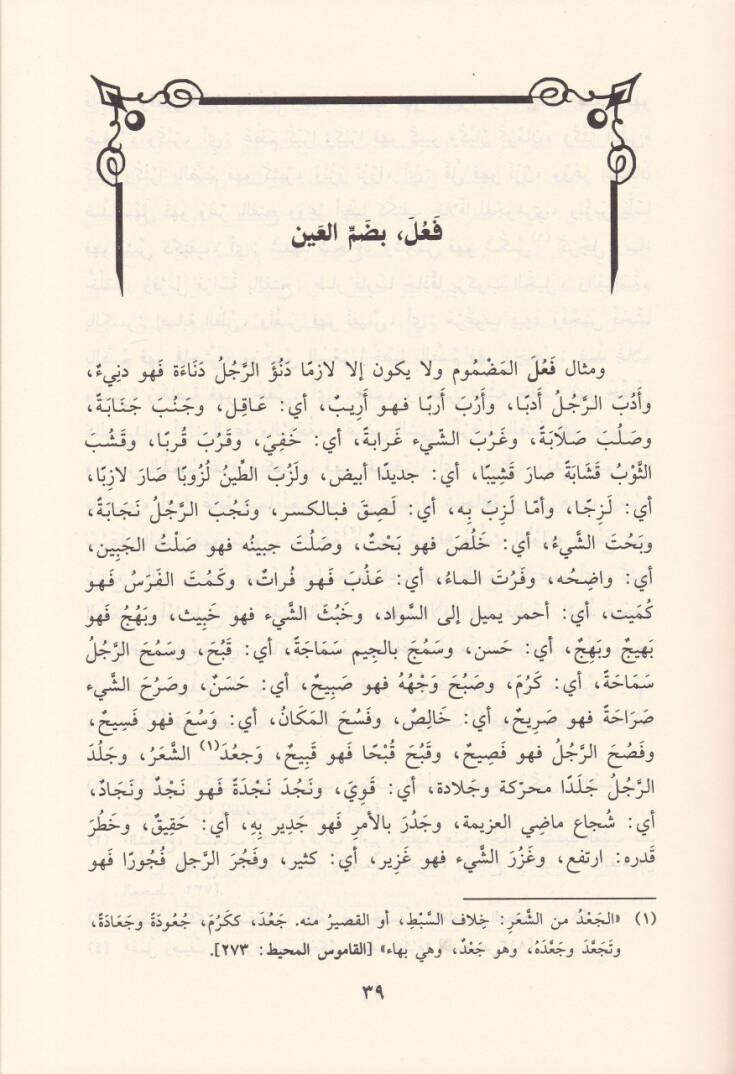 فَعُلَ، بضَمِّ العَين
ومثال فَعُلَ المَضْمُوم ولا يكون إلا لازمًا دَنُؤَ الرَّجُلُ دَنَاءَة فَهو دنِيءٌ،
وأَدُبَ الرَّجُلُ أَدبًا، وأَرُبَ أَربًا فـهـو أَرِيبٌ، أي: عَـاقِـل، وجَـنُـبَ جَـنَـابَـةً،
وصَلُبَ صَلَابَةً، وغَرُبَ الشَّيء غَرابةً، أي: خَفِيَ، وقَرُبَ قُربًا، وقَشُبَ
الثَّوْبُ قَشَابَةً صارَ قَشِيبًا، أي: جديدًا أبيض، ولَزُبَ الطِّينُ لُزُوبًا صَارَ لازِبًا،
أي: لَـزِجًا، وأمّا لَـزِبَ بِه، أي: لَـصِقَ فـبالكسر، ونَجُبَ الرَّجُلُ نَجَابَةً،
وبَحُتَ الشَّيءُ، أي: خَلُصَ فهو بَحْتٌ، وصَلُتَ جبينُه فهو صَلْتُ الجَبِين،
أي: واضِحُه، وفَرُتَ الماءُ، أي: عَذُبَ فَـهـو فُراتٌ، وكَمُتَ الفَرَسُ فَهـو
كُمَيت، أي: أحمر يميل إلى السَّواد، وخَبُثَ الشَّيء فهو خَبِيث، وبَهُجَ فهو
بَهيجٌ وبَهِجٌ، أي: حَسن، وسَمُجَ بالجِيم سَمَاجَةً، أي: قَبُحَ، وسَمُحَ الرَّجُلُ
سَمَاحَةً، أي: كَرُمَ، وصَبُحَ وَجْهُهُ فهو صَبِيحٌ، أي: حَسَنٌ، وصَرُحَ الشَّيء
صَرَاحَةً فهو صَرِيحٌ، أي: خَالِصٌ، وفَسُحَ المَكَانُ، أي: وَسُعَ فهو فَسِيحٌ،
وفَصُحَ الرَّجُلُ فهو فَصِيحٌ، وقَبُحَ قُبْحًا فَهو قَبِيحٌ، وجَعُدَ(١) الشَّعَرُ، وجَلُدَ
الرَّجُلُ جَلَدًا محرّكة وجَلادة، أي: قَوِيَ، ونَجُدَ نَجْدَةً فَهو نَجْدٌ ونَجَادٌ،
أي: شُجاع ماضِي العزيمة، وجَدُرَ بالأمرِ فَهو جَدِير بِهِ، أي: حَقِيقٌ، وخَطُرَ
قَدره: ارتفع، وغَزُرَ الشَّيء فهو غَزِير، أي: كثير، وفَجُرَ الرَّجل فُجُورًا فَهو
(١) «الجَعْدُ من الشَّعَرِ: خِلاف السَّبْطِ، أو القصيرُ منه. جَعُدَ، ككَرُمَ، جُعُودَةً وجَعَادَةً،
وتَجَعَّدَ وجَعَّدَهُ، وهو جَعْدٌ، وهي بهاء» [القاموس المحيط: ٢٧٣].
٣٩